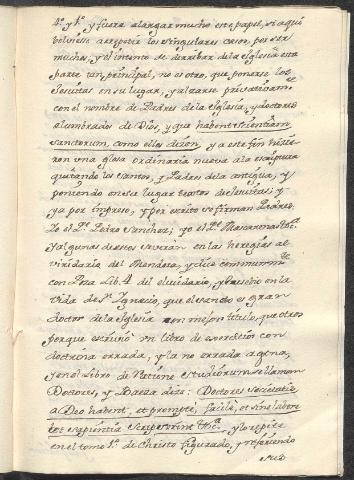 4º y 1º y fuera alargar mucho este papel, si aqui
bolviesse a repetir los singulares casos, por ser
muchos, y el intento de derribar de la Iglesia esta
parte tan principal, no es otro, que ponerse los
Jesuitas en su lugar, y alzarse privativamte
con el nombre de Padres de la Iglesia, y doctores
alumbrados de Dios, y que habent scientiam
sanctorum, como ellos dizen, y a este fin hizie-
ron una glosa ordinaria nueva a la escriptura
quitando los santos, y Padres de la antigua, y
poniendo en su lugar textos de Jesuitas; y
ya por impreso, y por escrito se firman Padres.
Yo el Pe Pedro Sanchez; yo el Pe
y algunas de estas se verán en las heregias al
viridario del Mendoza, y dice communmte
con Pza Lib. 4 del eluidario, y Eusebio en la
Vida de Sn Ignacio, que el santo es gran
doctor de la Iglesia con mejor titulo, que otros
porque escrivió un libro de exercicios con
doctrina errada, y la no errada agena,
y en el Libro de Ratione studiorum se llaman
Doctores, y Baeza dize: Doctores societatis
a Deo habent, et prompte, facile, et sine labore
et sapientia scripserint &ca. y lo repite
en el tomo 1º de Christo figurado, y refiriendo
sus